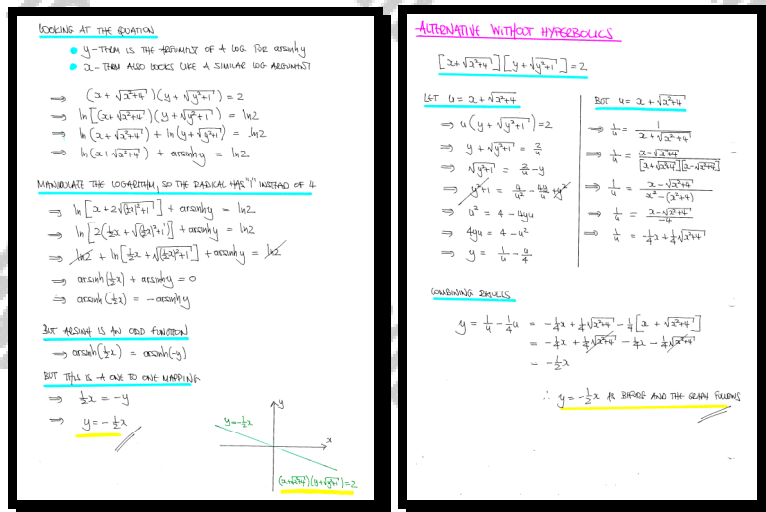 LOOKING AT THE EQUATION
y-TERM IS THE ARGUMENT OF A LOG FOR arsinhy
x-TERM ALSO LOOKS LIKE A SIMILAR LOG ARGUMENT
⇒ (x + √(x²+4))(y + √(y²+1)) = 2
⇒ ln[(x + √(x²+4))(y + √(y²+1))] = ln2
⇒ ln(x + √(x²+4)) + ln(y + √(y²+1)) = ln2
⇒ ln(x + √(x²+4)) + arsinhy = ln2
MANIPULATE THE LOGARITHM, SO THE RADICAL HAS "1" INSTEAD OF 4
⇒ ln[x + 2√((½x)²+1)] + arsinhy = ln2
⇒ ln[2(½x + √((½x)²+1))] + arsinhy = ln2
⇒ ln2 + ln[½x + √((½x)²+1)] + arsinhy = ln2
⇒ arsinh(½x) + arsinhy = 0
⇒ arsinh(½x) = -arsinhy
BUT ARSINH IS AN ODD FUNCTION
⇒ arsinh(½x) = arsinh(-y)
BUT THIS IS A ONE TO ONE MAPPING
⇒ ½x = -y
⇒ y = -½x
y
y=-½x
x
(x+√(x²+4))(y+√(y²+1))=2
ALTERNATIVE WITHOUT HYPERBOLICS
[x + √(x²+4)][y + √(y²+1)] = 2
LET u = x + √(x²+4)
⇒ u(y + √(y²+1)) = 2
⇒ y + √(y²+1) = 2/u
⇒ √(y²+1) = 2/u - y
⇒ y²+1 = 4/u² - 4y/u + y²
⇒ u² = 4 - 4yu
⇒ 4yu = 4 - u²
⇒ y = 1/u - u/4
BUT u = x + √(x²+4)
⇒ 1/u = 1/(x + √(x²+4))
⇒ 1/u = (x - √(x²+4))/([x + √(x²+4)][x - √(x²+4)])
⇒ 1/u = (x - √(x²+4))/(x² - (x²+4))
⇒ 1/u = (x - √(x²+4))/-4
⇒ 1/u = -¼x + ¼√(x²+4)
COMBINING RESULTS
y = 1/u - ¼u = -¼x + ¼√(x²+4) - ¼[x + √(x²+4)]
= -¼x + ¼√(x²+4) - ¼x - ¼√(x²+4)
= -½x
∴ y = -½x AS BEFORE AND THE GRAPH FOLLOWS